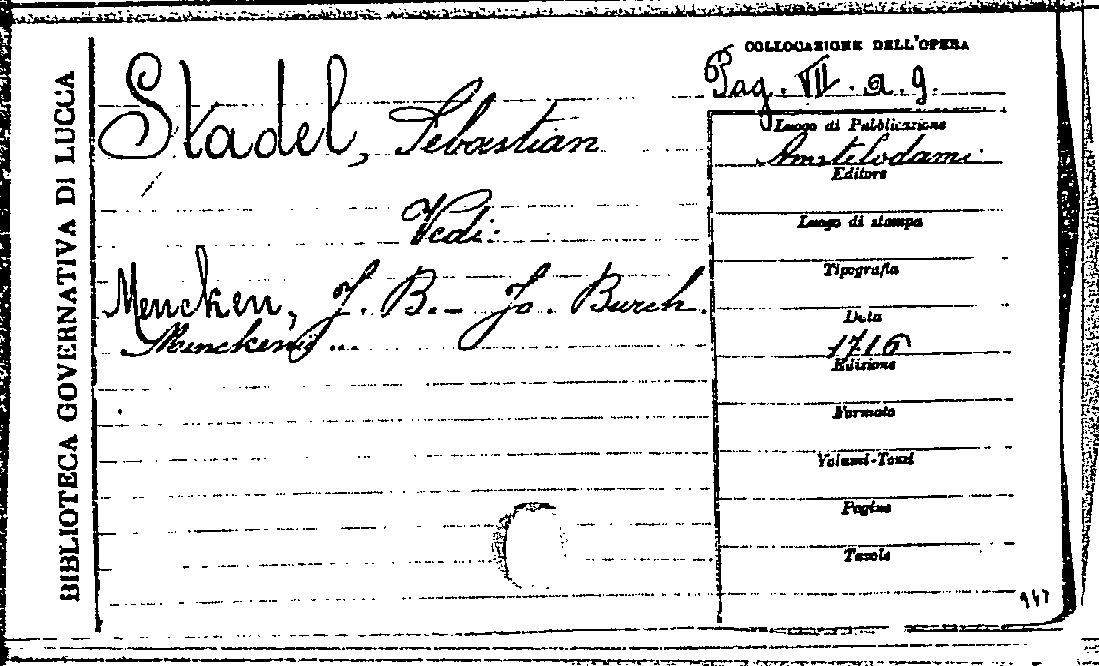 BIBLIOTECA GOVERNATIVA DI LUCCA
Stadel, Sebastian
Vedi:
Mencken, J. B. - Jo. Burch.
Menckenii ...
COLLOCAZIONE DELL'OPERA
Pag. VII. a. g.
Luogo di Pubblicazione
Amstelodami
Editore
Luogo di stampa
Tipografia
Data
1716
Edizione
Formato
Volumi-Tomi
Pagine
Tavole
947